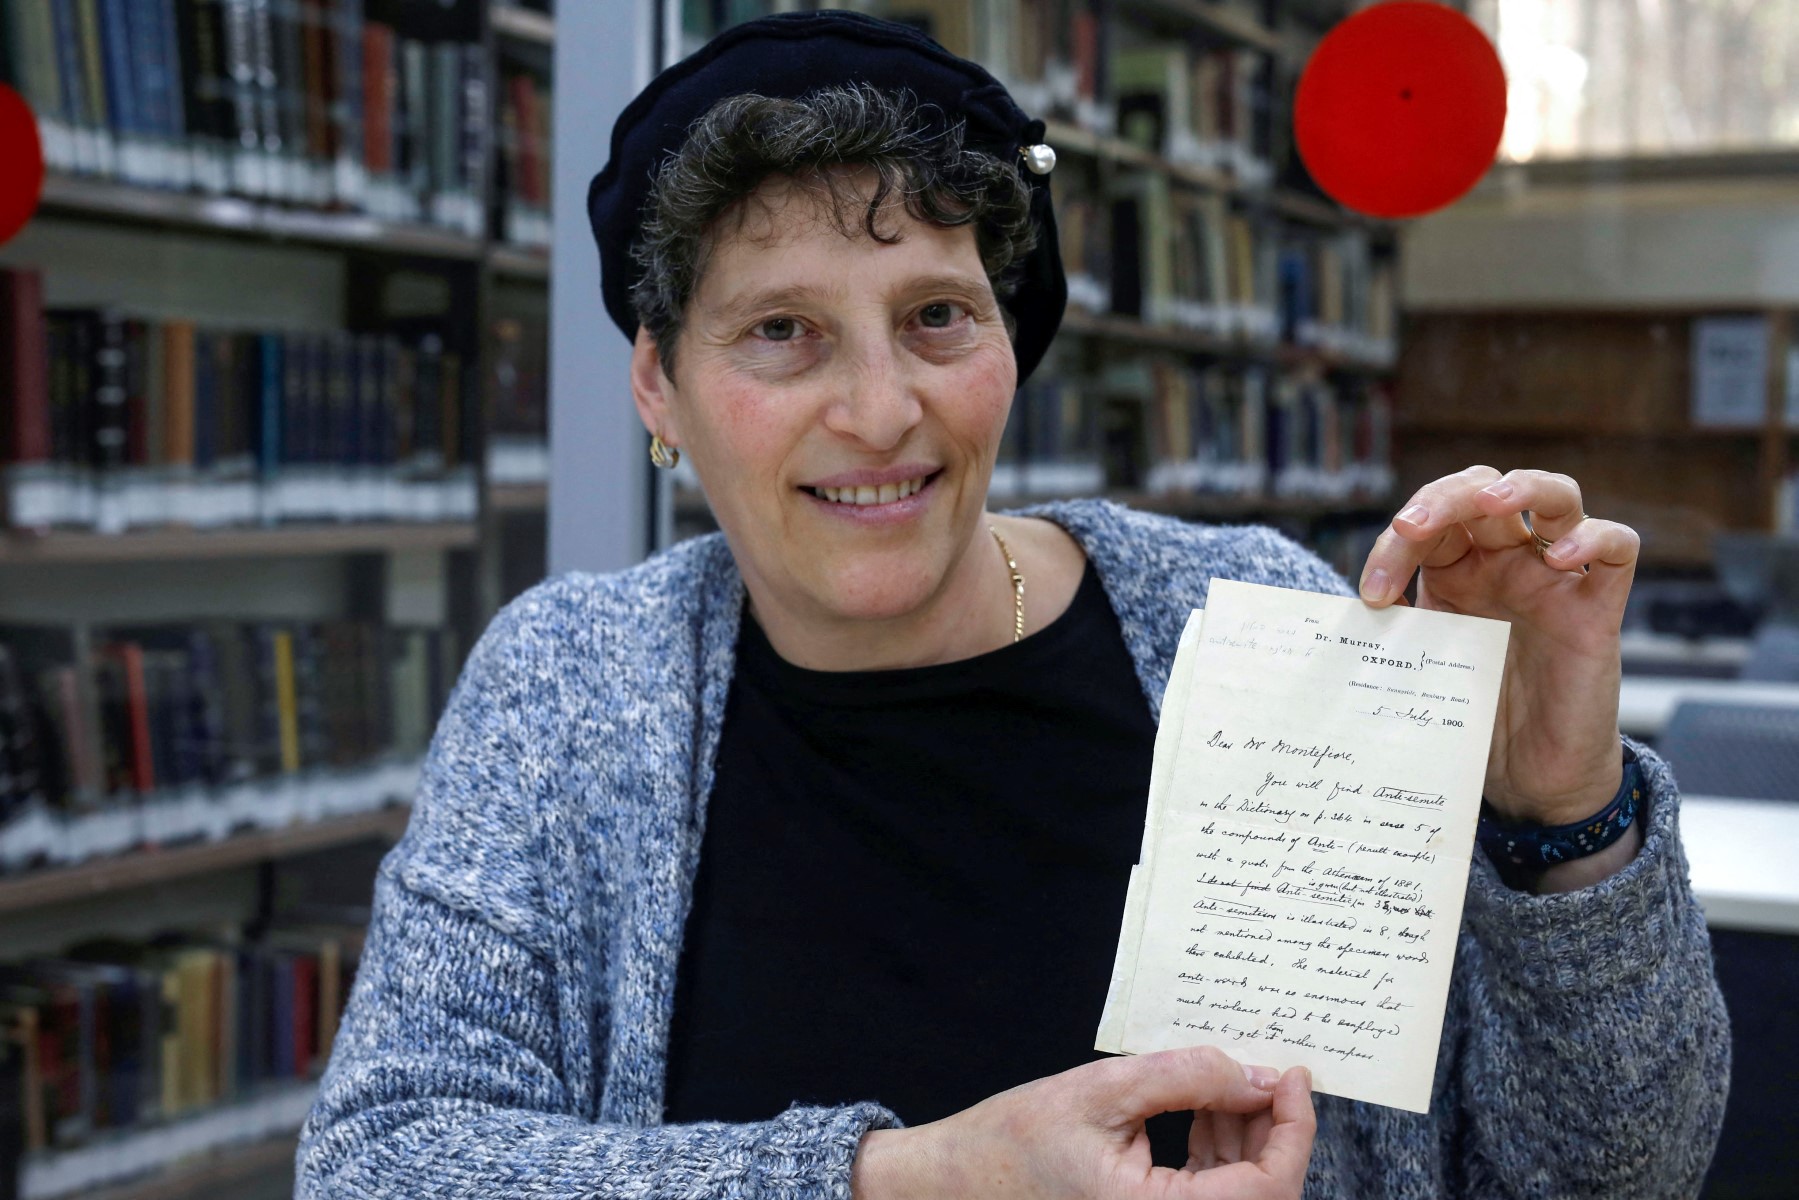 From
Dr. Murray,
OXFORD.
(Postal Address.)
(Residence: Sunnyside, Banbury Road.)
5 July 1900.
Dear Mr Montefiore,
You will find Anti-semite
in the Dictionary on p. 364 in sense 5 of
the compounds of Anti- (penult. example)
with a quot. from the Athenæum of 1881.
is given (but not illustrated)
I do not find Anti-semitic, in 3
Anti-semitism is illustrated in 8, though
not mentioned among the specimen words
there exhibited. The material for
anti- words was so enormous that
much violence had to be employed
them
in order to get it within compass.